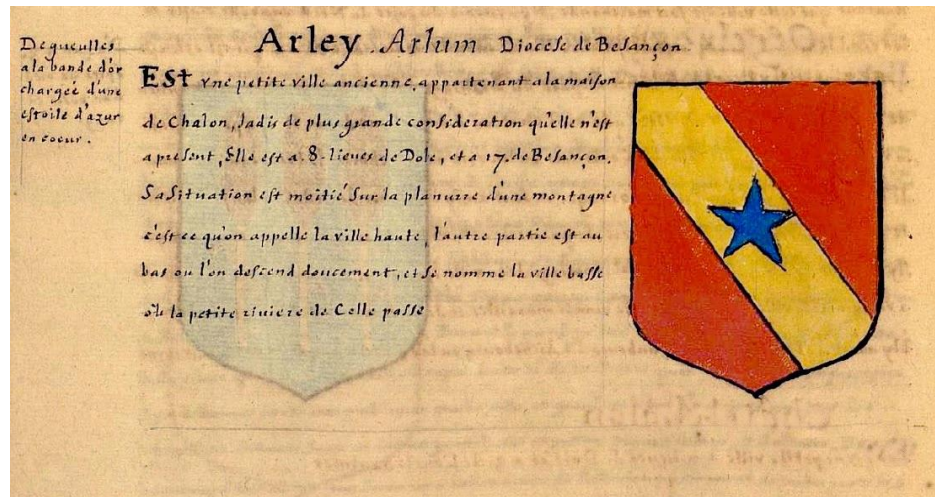 Arley . Arlum Diocese de Besançon.
De gueulles
a la bande d'or
chargeé d'une
estoile d'azur
en coeur.
Est vne petite ville ancienne, appartenant a la maison
de Chalon, Jadis de plus grande consideration qu'elle n'est
a present, Elle est a .8. lieues de Dole, et a 17. de Besançon.
Sa Situation est moitié Sur la planure d'une montagne
c'est ce qu'on appelle la ville haute, l'autre partie est au
bas ou l'on descend doucement, et se nomme la ville basse
où la petite riviere de Celle passe